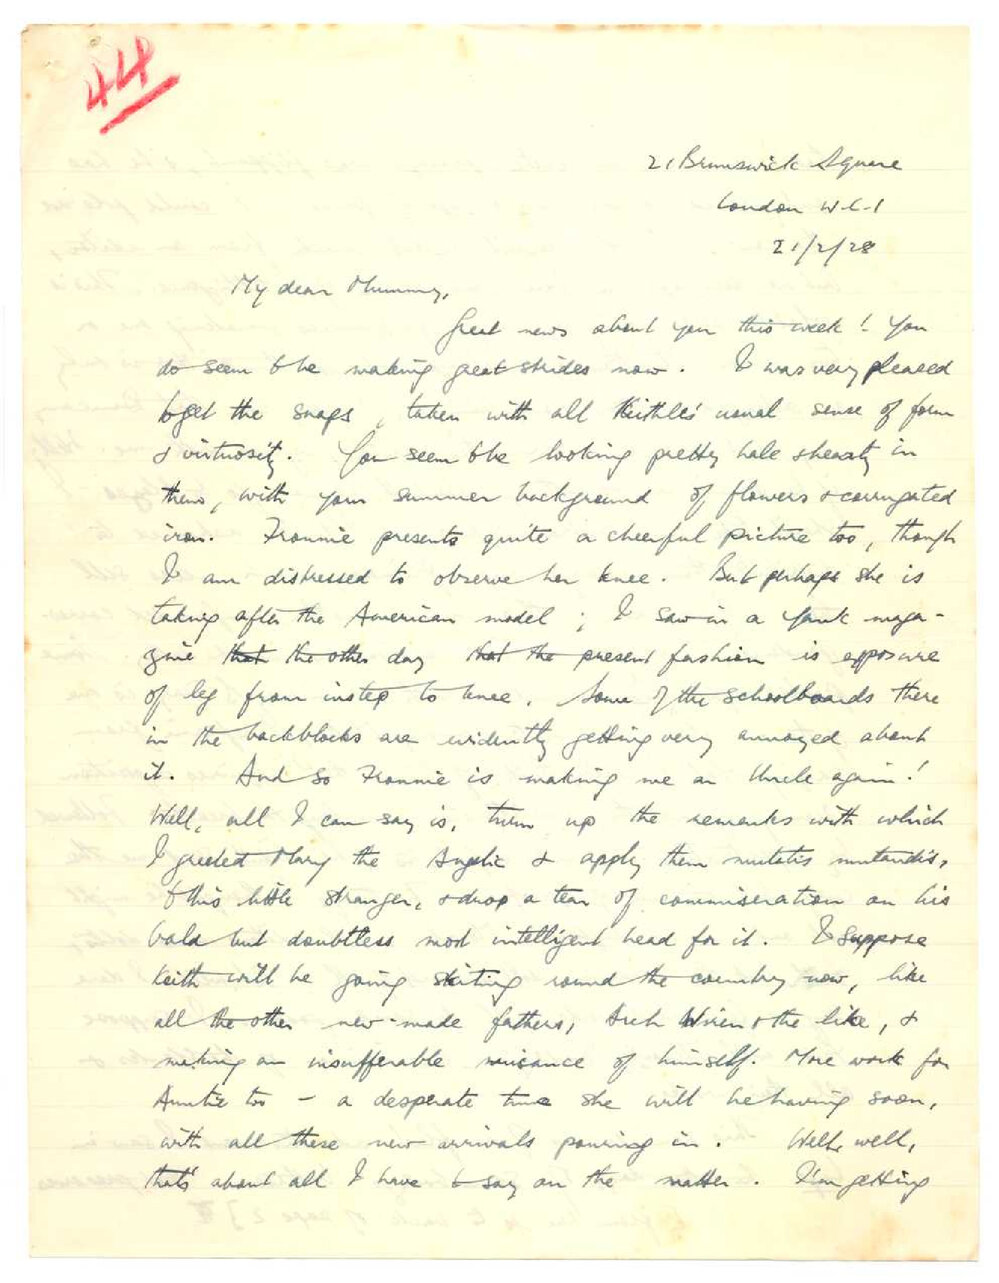 44
21 Brunswick Square
London W.C.1
21/2/28
My dear Mummy,
Great news about you this week! You
do seem to be making great strides now. I was very pleased
to get the snaps, taken with all Keithle's usual sense of form
& virtuosity. You seem to be looking pretty hale & hearty in
them, with your summer background of flowers & corrugated
iron. Frannie presents quite a cheerful picture too, though
I am distressed to observe her knee. But perhaps she is
taking after the American model; I saw in a Yank maga-
zine that the other day that the present fashion is exposure
of leg from instep to knee. Some of the schoolboards there
in the backblocks are evidently getting very annoyed about
it. And so Frannie is making me an Uncle again!
Well, all I can say is, turn up the remarks with which
I greeted Mary the Angelic & apply them mutatis mutandis,
to this little stranger, & drop a tear of commiseration on his
bald but doubtless most intelligent head for it. I suppose
Keith will be going skiting round the country now, like
all the other new-made fathers, Arch Wren & the like, &
making an insufferable nuisance of himself. More work for
Auntie too – a desperate time she will be having soon,
with all these new arrivals pouring in. Well, well,
that's about all I have to say on the matter. I'm getting